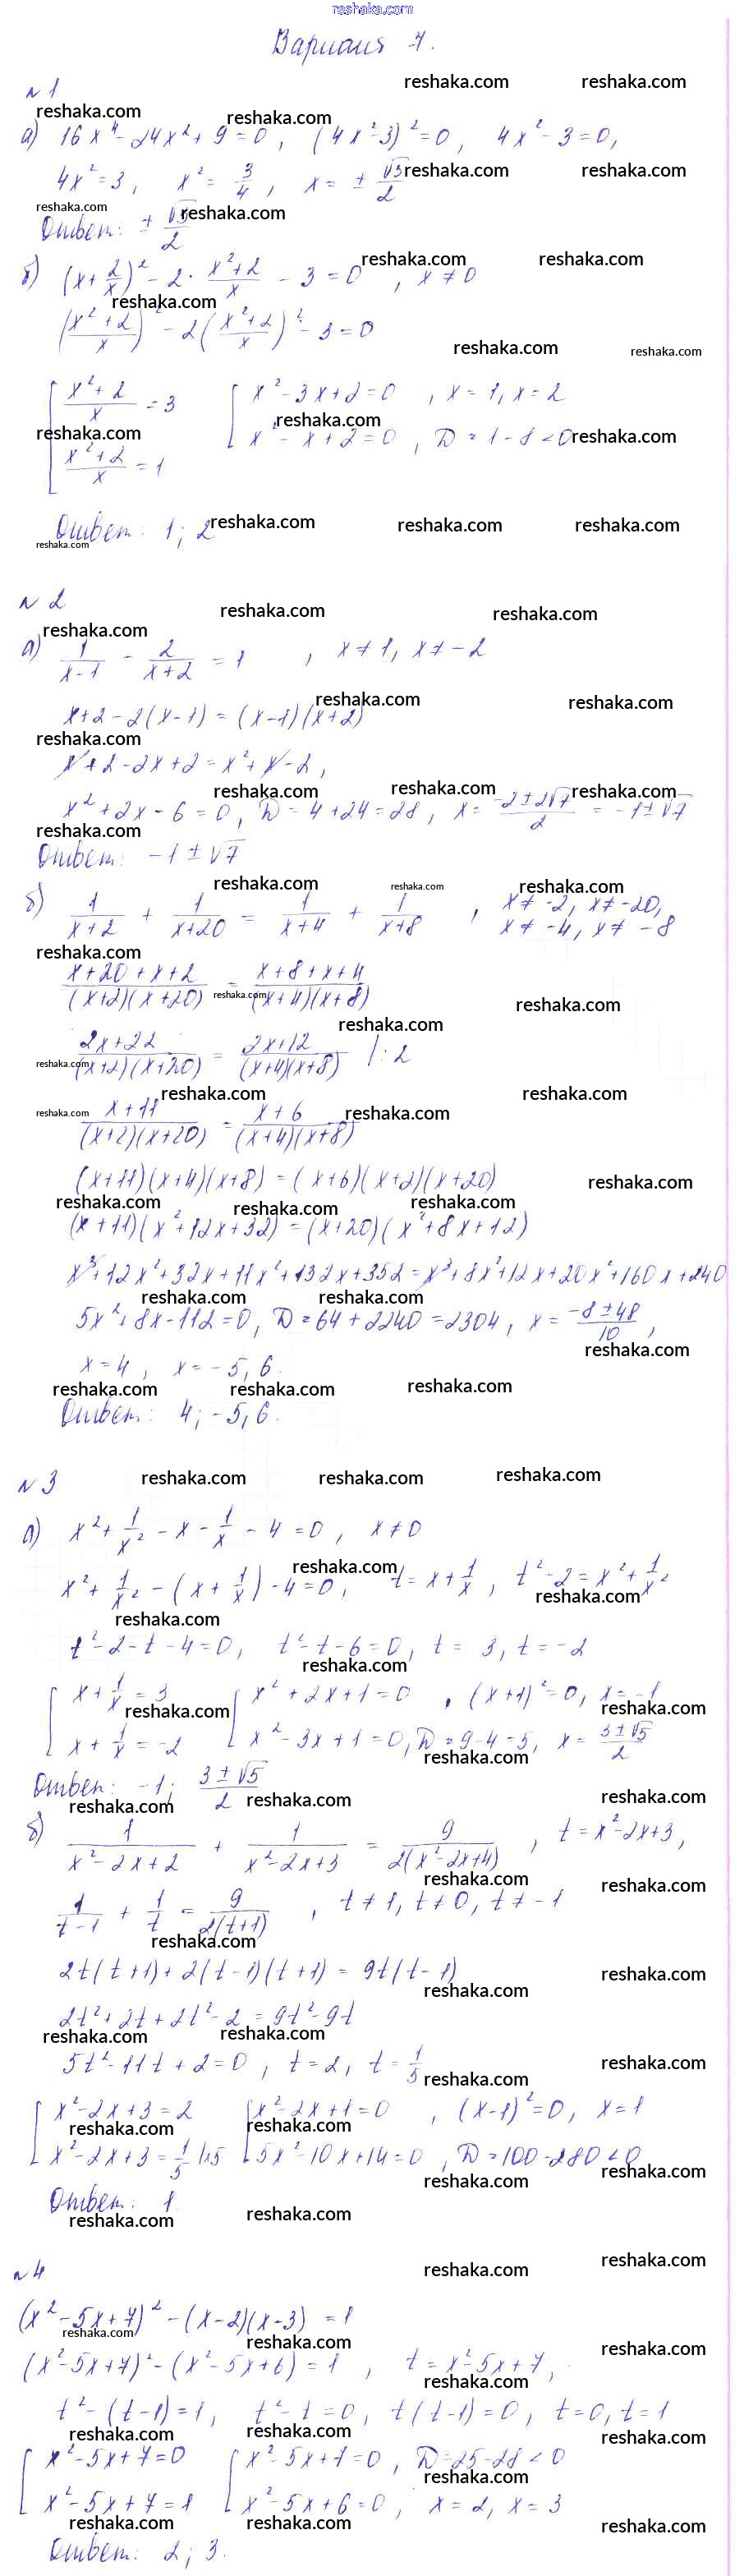 reshaka.com
Вариант 7.
№1
а) 16x⁴ - 24x² + 9 = 0, (4x² - 3)² = 0, 4x² - 3 = 0,
4x² = 3, x² = 3/4, x = ± √3/2
Ответ: ± √3/2
б) (x + 2/x)² - 2 · (x² + 2)/x - 3 = 0, x ≠ 0
((x² + 2)/x)² - 2((x² + 2)/x)² - 3 = 0
[ (x² + 2)/x = 3 [ x² - 3x + 2 = 0, x = 1, x = 2
(x² + 2)/x = 1 x² - x + 2 = 0, D = 1 - 8 < 0
Ответ: 1; 2
№2
а) 1/(x-1) - 2/(x+2) = 1, x ≠ 1, x ≠ -2
x + 2 - 2(x - 1) = (x - 1)(x + 2)
x + 2 - 2x + 2 = x² + x - 2,
x² + 2x - 6 = 0, D = 4 + 24 = 28, x = (-2 ± 2√7)/2 = -1 ± √7
Ответ: -1 ± √7
б) 1/(x+2) + 1/(x+20) = 1/(x+4) + 1/(x+8), x ≠ -2, x ≠ -20,
x ≠ -4, x ≠ -8
(x + 20 + x + 2)/((x+2)(x+20)) = (x + 8 + x + 4)/((x+4)(x+8))
(2x + 22)/((x+2)(x+20)) = (2x + 12)/((x+4)(x+8)) |: 2
(x + 11)/((x+2)(x+20)) = (x + 6)/((x+4)(x+8))
(x+11)(x+4)(x+8) = (x+6)(x+2)(x+20)
(x+11)(x² + 12x + 32) = (x+20)(x² + 8x + 12)
x³ + 12x² + 32x + 11x² + 132x + 352 = x³ + 8x² + 12x + 20x² + 160x + 240
5x² + 8x - 112 = 0, D = 64 + 2240 = 2304, x = (-8 ± 48)/10,
x = 4, x = -5,6.
Ответ: 4; -5,6.
№3
а) x² + 1/x² - x - 1/x - 4 = 0, x ≠ 0
x² + 1/x² - (x + 1/x) - 4 = 0, t = x + 1/x, t² - 2 = x² + 1/x²
t² - 2 - t - 4 = 0, t² - t - 6 = 0, t = 3, t = -2
[ x + 1/x = 3 [ x² + 2x + 1 = 0, (x+1)² = 0, x = -1
x + 1/x = -2 x² - 3x + 1 = 0, D = 9 - 4 = 5, x = (3 ± √5)/2
Ответ: -1; (3 ± √5)/2
б) 1/(x² - 2x + 2) + 1/(x² - 2x + 3) = 9/(2(x² - 2x + 4)), t = x² - 2x + 3,
1/(t-1) + 1/t = 9/(2(t+1)), t ≠ 1, t ≠ 0, t ≠ -1
2t(t+1) + 2(t-1)(t+1) = 9t(t-1)
2t² + 2t + 2t² - 2 = 9t² - 9t
5t² - 11t + 2 = 0, t = 2, t = 1/5
[ x² - 2x + 3 = 2 [ x² - 2x + 1 = 0, (x-1)² = 0, x = 1
x² - 2x + 3 = 1/5 |·5 5x² - 10x + 14 = 0, D = 100 - 280 < 0
Ответ: 1.
№4
(x² - 5x + 7)² - (x-2)(x-3) = 1
(x² - 5x + 7)² - (x² - 5x + 6) = 1, t = x² - 5x + 7,
t² - (t-1) = 1, t² - t = 0, t(t-1) = 0, t = 0, t = 1
[ x² - 5x + 7 = 0 [ x² - 5x + 7 = 0, D = 25 - 28 < 0
x² - 5x + 7 = 1 x² - 5x + 6 = 0, x = 2, x = 3
Ответ: 2; 3.